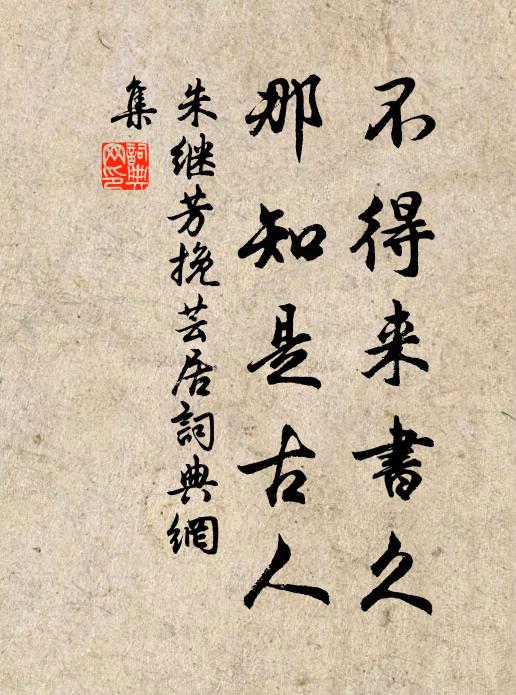 不得来書久
那知是古人
朱继芳挽芸居詞典網
集
詞典网印